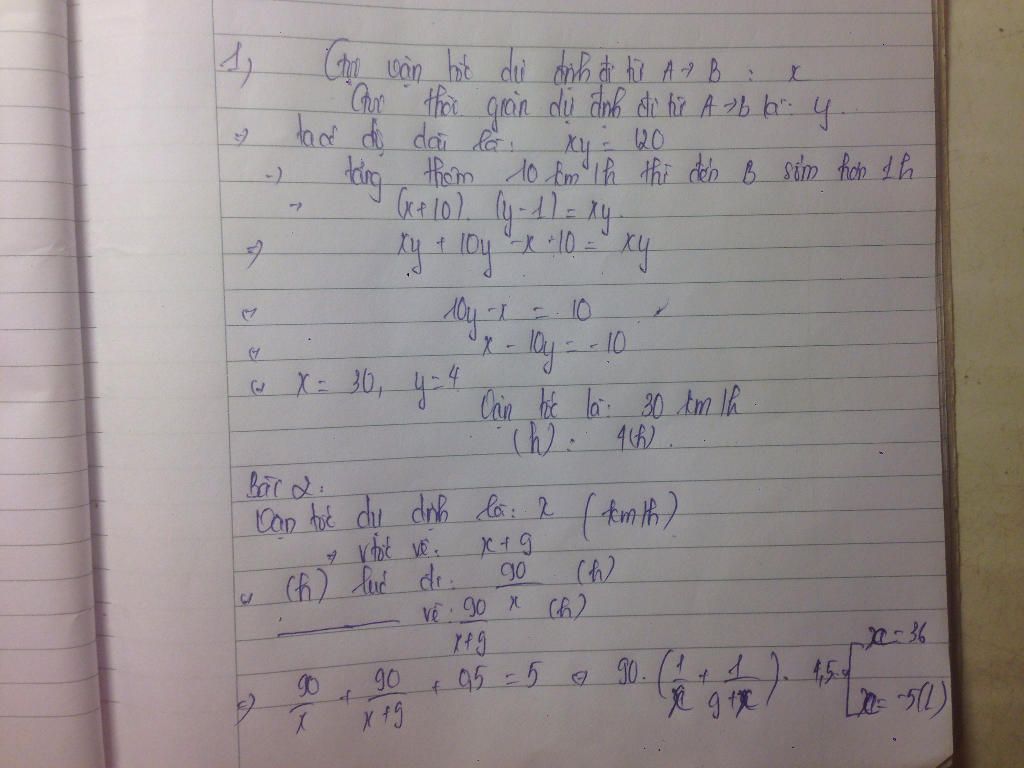 1, Gọi vận tốc dự định đi từ A → B : x
Gọi thời gian dự định đi từ A → b là: y.
=> ta có độ dài là: xy = 120
-> tăng thêm 10 km/h thì đến B sớm hơn 1h
→ (x+10). (y-1) = xy.
=> xy + 10y - x - 10 = xy
<=> 10y - x = 10
<=> x - 10y = -10
<=> x = 30, y = 4
Vận tốc là: 30 km/h
(h): 4(h).
Bài 2:
Vận tốc dự định là: x (km/h)
=> vtốc về: x + 9
(h) lúc đi: 90/x (h)
về: 90/x+9 (h)
=> 90/x + 90/x+9 + 0,5 = 5 <=> 90. (1/x + 1/9+x). 4,5 x = 36
x = -5(l)